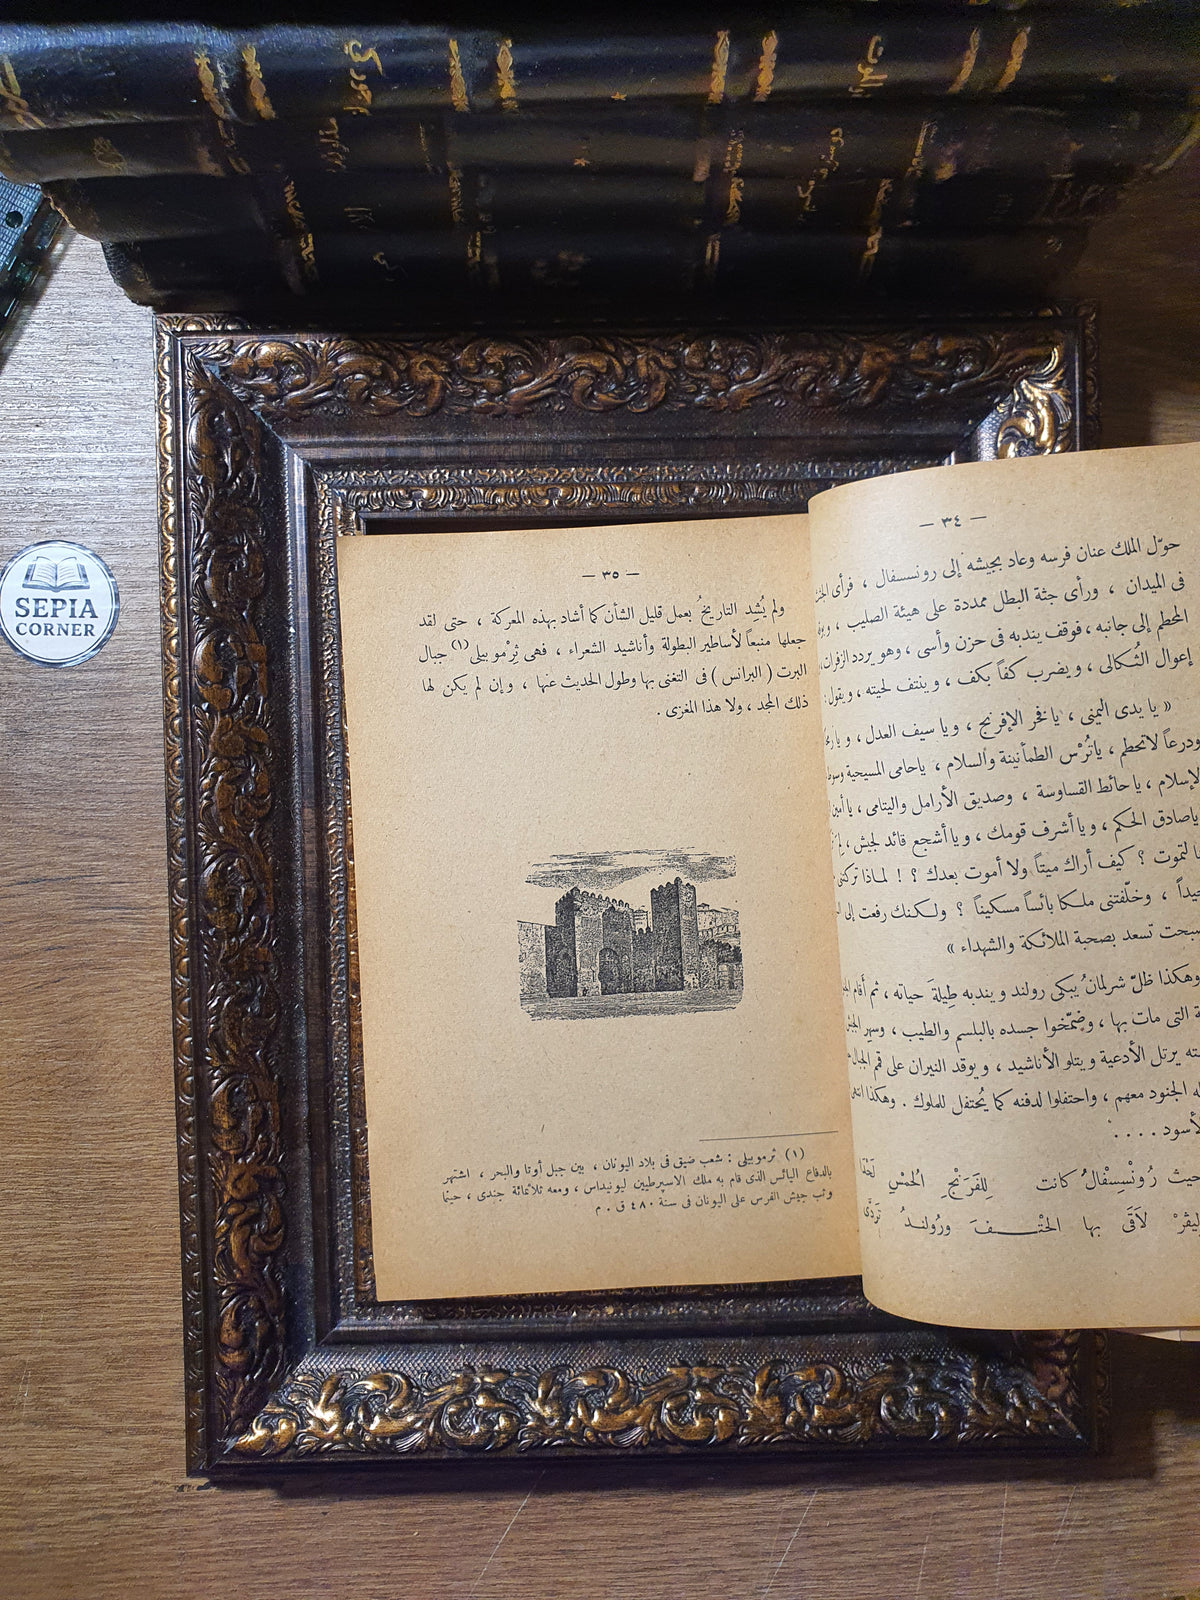 SEPIA
CORNER
— ٣٤ —
حوّل الملك عنان فرسه وعاد بجيشه إلى رونسسفال ، فرأى
فى الميدان ، ورأى جثة البطل ممددة على هيئة الصليب ،
المحطم إلى جانبه ، فوقف يندبه فى حزن وأسى ، وهو يردد الزفرات
إعوال الثُكالى ، ويضرب كفاً بكف ، وينتف لحيته ، ويقول :
« يا يدى اليمنى ، يا نفر الإفرنج ، ويا سيف العدل ،
ودرعاً لا تحطم ، يا تُرْس الطمأنينة والسلام ، يا حامى المسيحية
الإسلام ، يا حائط القساوسة ، وصديق الأرامل واليتامى ، يا أمين
يا صادق الحكم ، ويا أشرف قومك ، ويا أشجع قائد لجيش ،
لتموت ؟ كيف أراك ميتاً ولا أموت بعدك ؟ ! لماذا تركتنى
، وخلّفتنى ملكا بائساً مسكيناً ؟ ولكنك رفعت إلى
تسعد بصحبة الملائكة والشهداء »
وهكذا ظلّ شرلمانُ يبكى رولند ويندبه طِيلةَ حياته ، ثم أقام
التى مات بها ، وضمّخوا جسده بالبلسم والطيب ، وسهر
يرتل الأدعية ويتلو الأناشيد ، ويوقد النيران على قمم الجبال
الجنود معهم ، واحتفلوا لدفنه كما يُحتفل للملوك . وهكذا
. . . .
حيث رُونْسِسْفَالُ كانت لِلفَرَنْجِ الحُمْسِ
لاَقَى بها الحَتْـفَ ورُولندُ تَرَدَّى
— ٣٥ —
ولم يُشِد التاريخُ بعمل قليل الشأن كما أشاد بهذه المعركة ، حتى لقد
جعلها منبعاً لأساطير البطولة وأناشيد الشعراء ، فهى ثِرْمو بيلى (١) جبال
البرت ( البرانس ) فى التغنى بها وطول الحديث عنها ، وإن لم يكن لها
ذلك المجد ، ولا هذا المغزى .
(١) ثرموبيلى : شعب ضيق فى بلاد اليونان ، بين جبل أوتا والبحر ، اشتهر
بالدفاع اليائس الذى قام به ملك الاسبرطيين ليونيداس ، ومعه ثلاثمائة جندى ، حينما
وثب جيش الفرس على اليونان فى سنة ٤٨٠ ق . م